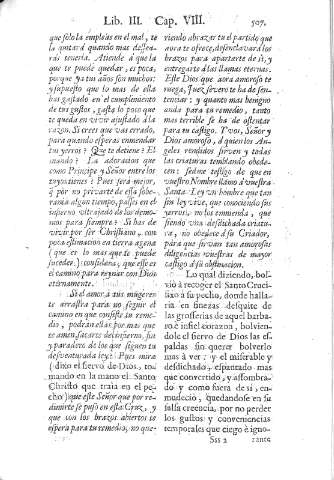 Lib. III. Cap. VIII. 507.
que sólo la empleas en el mal, te
la quitará quando mas desea-
rás tenerla. Atiende à que la
que te puede quedar, es poca,
porque yà tus años son muchos:
y supuesto que lo mas de ella
has gastado en el cumplimiento
de tus gustos, gasta lo poco que
te queda en vivir ajustado à la
razon. Si crees que vàs errado,
para quando esperas enmendar
tus yerros? Que te detiene? El
mundo? La adoracion que
como Principe y Señor entre los
tuyos tienes? Pues serà mejor,
que por no privarte de essa sobe-
rania algun tiempo, passes en el
infierno ultrajado de los demo-
nios para siempre? Si has de
vivir por ser Christiano, con
poca estimacion en tierra agena
(que es lo mas que te puede
suceder) considera, que esse es
el camino para reynar con Dios
eternamente.
Si el amor à tus mugeres
te arrastra para no seguir el
camino en que consiste tu reme-
dio, podràn ellas por mas que
te amen, sacarte del infierno, fin
y paradero de los que siguen tu
desventurada ley? Pues mira
(dixo el siervo de Dios, to-
mando en la mano el Santo
Christo que traìa en el pe-
cho) que este Señor que por re-
dimirte se puso en esta Cruz, y
que con los brazos abiertos te
espera para tu remedio, no que-
riendo abrazar tu el partido que
aora te ofrece, desenclavarà los
brazos para apartarte de sì, y
entregarte à las llamas eternas.
Este Dios que aora amoroso te
ruega, Juez severo te ha de sen-
tenciar: y quanto mas benigno
anda para tu remedio, tanto
mas terrible se ha de ostentar
para tu castigo. Y vos, Señor y
Dios amoroso, à quien los An-
geles rendidos sirven y todas
las criaturas temblando obede-
cen: sedme testigo de que en
vuestro Nombre llamo à vuestra
Santa Ley un hombre que tan
sin ley vive, que conociendo sus
yerros, no los enmienda, que
siendo una desdichada criatu-
ra, no obedece à su Criador,
para que sirvan tan amorosas
diligencias vuestras de mayor
castigo à su obstinacion.
Lo qual diziendo, bol-
viò à recoger el Santo Cruci-
fixo à su pecho, donde halla-
ria en finezas desquite de
las grosserias de aquel barba-
ro è infiel corazon, bolvien-
dole el siervo de Dios las es-
paldas sin querer bolverlo
mas à ver: y el miserable y
desdichado, espantado mas
que convertido, y assombra-
do y como fuera de sì, en-
mudeciò, quedandose en su
falsa creencia, por no perder
los gustos y conveniencias
temporales que ciego è igno-
Sss 2 rante